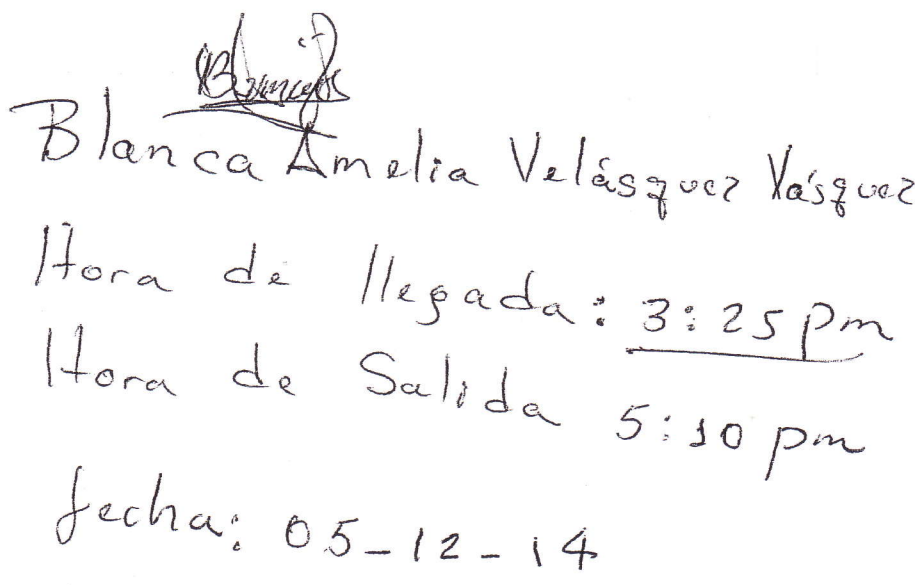 Blanca Amelia Velásquez Vásquez
Hora de llegada: 3:25 pm
Hora de Salida 5:10 pm
fecha: 05-12-14